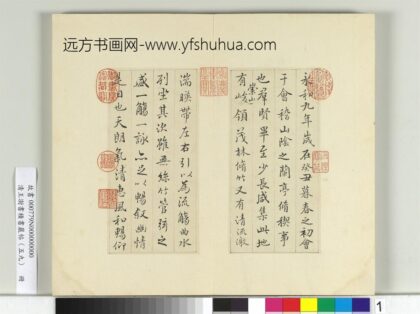 远方书画网-www.yfshuhua.com
永和九年歲在癸丑暮春之初會
于會稽山陰之蘭亭脩禊事
也羣賢畢至少長咸集此地
有崇山峻領茂林脩竹又有清流激
湍暎帶左右引以為流觴曲水
列坐其次雖無絲竹管弦之
盛一觴一詠亦足以暢敘幽情
是日也天朗氣清惠風和暢仰
1